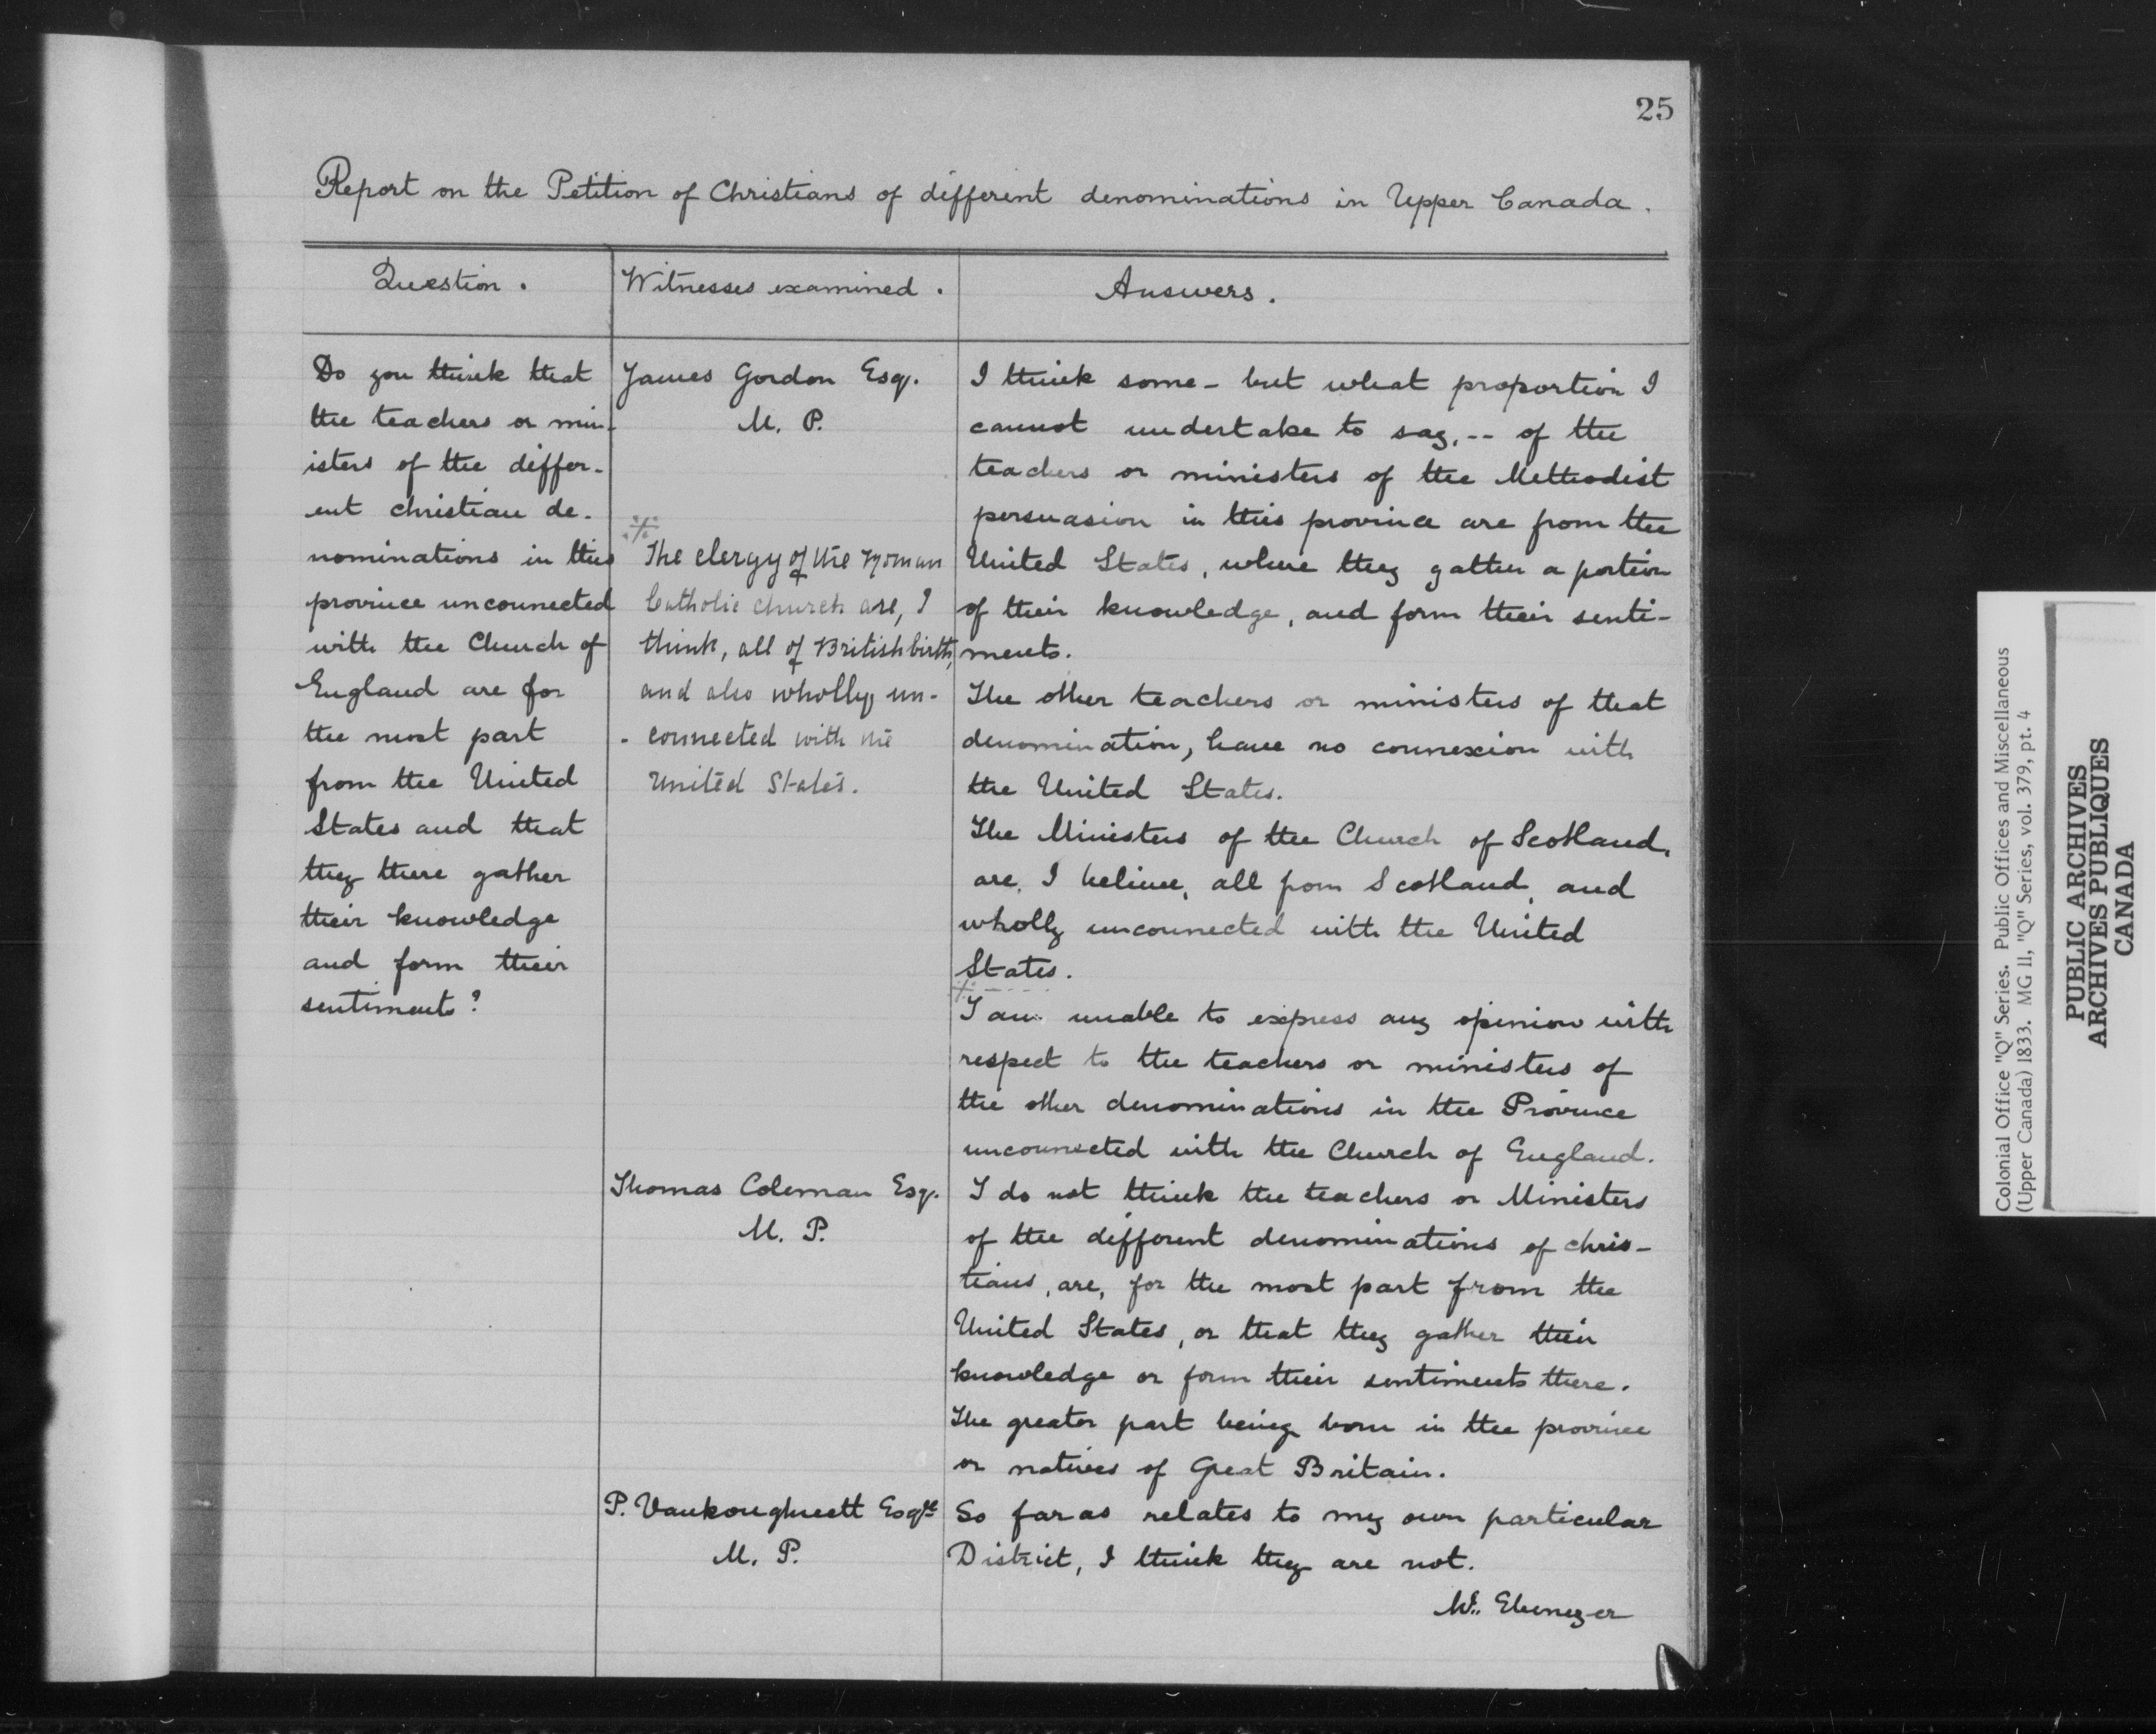 25
Report on the Petition of Christians of different denominations in Upper Canada.
Question.
Witnesses examined.
Answers.
Do you think that
the teachers or min-
isters of the differ-
ent christian de-
nominations in this
province unconnected
with the Church of
England are for
the most part
from the United
States and that
they there gather
their knowledge
and form their
sentiments?
James Gordon Esq.
M. P.
The clergy of the Roman
Catholic church are, I
think, all of British birth,
and also wholly un-
- connected with the
United States.
I think some - but what proportion I
cannot undertake to say, -- of the
teachers or ministers of the Methodist
persuasion in this province are from the
United States, where they gather a portion
of their knowledge, and form their senti-
ments.
The other teachers or ministers of that
denomination, have no connexion with
the United States.
The Ministers of the Church of Scotland,
are, I believe, all from Scotland, and
wholly unconnected with the United
States.
I am unable to express any opinion with
respect to the teachers or ministers of
the other denominations in the Province
unconnected with the Church of England.
Thomas Coleman Esq.
M. P.
I do not think the teachers or Ministers
of the different denominations of chris-
tians, are, for the most part from the
United States, or that they gather their
knowledge or form their sentiments there.
The greater part being born in the province
or natives of Great Britain.
P. Vankoughnett Esqre
M. P.
So far as relates to my own particular
District, I think they are not.
Wm. Ebenezer
Colonial Office "Q" Series. Public Offices and Miscellaneous
(Upper Canada) 1833. MG 11, "Q" Series, vol. 379, pt. 4
PUBLIC ARCHIVES
ARCHIVES PUBLIQUES
CANADA